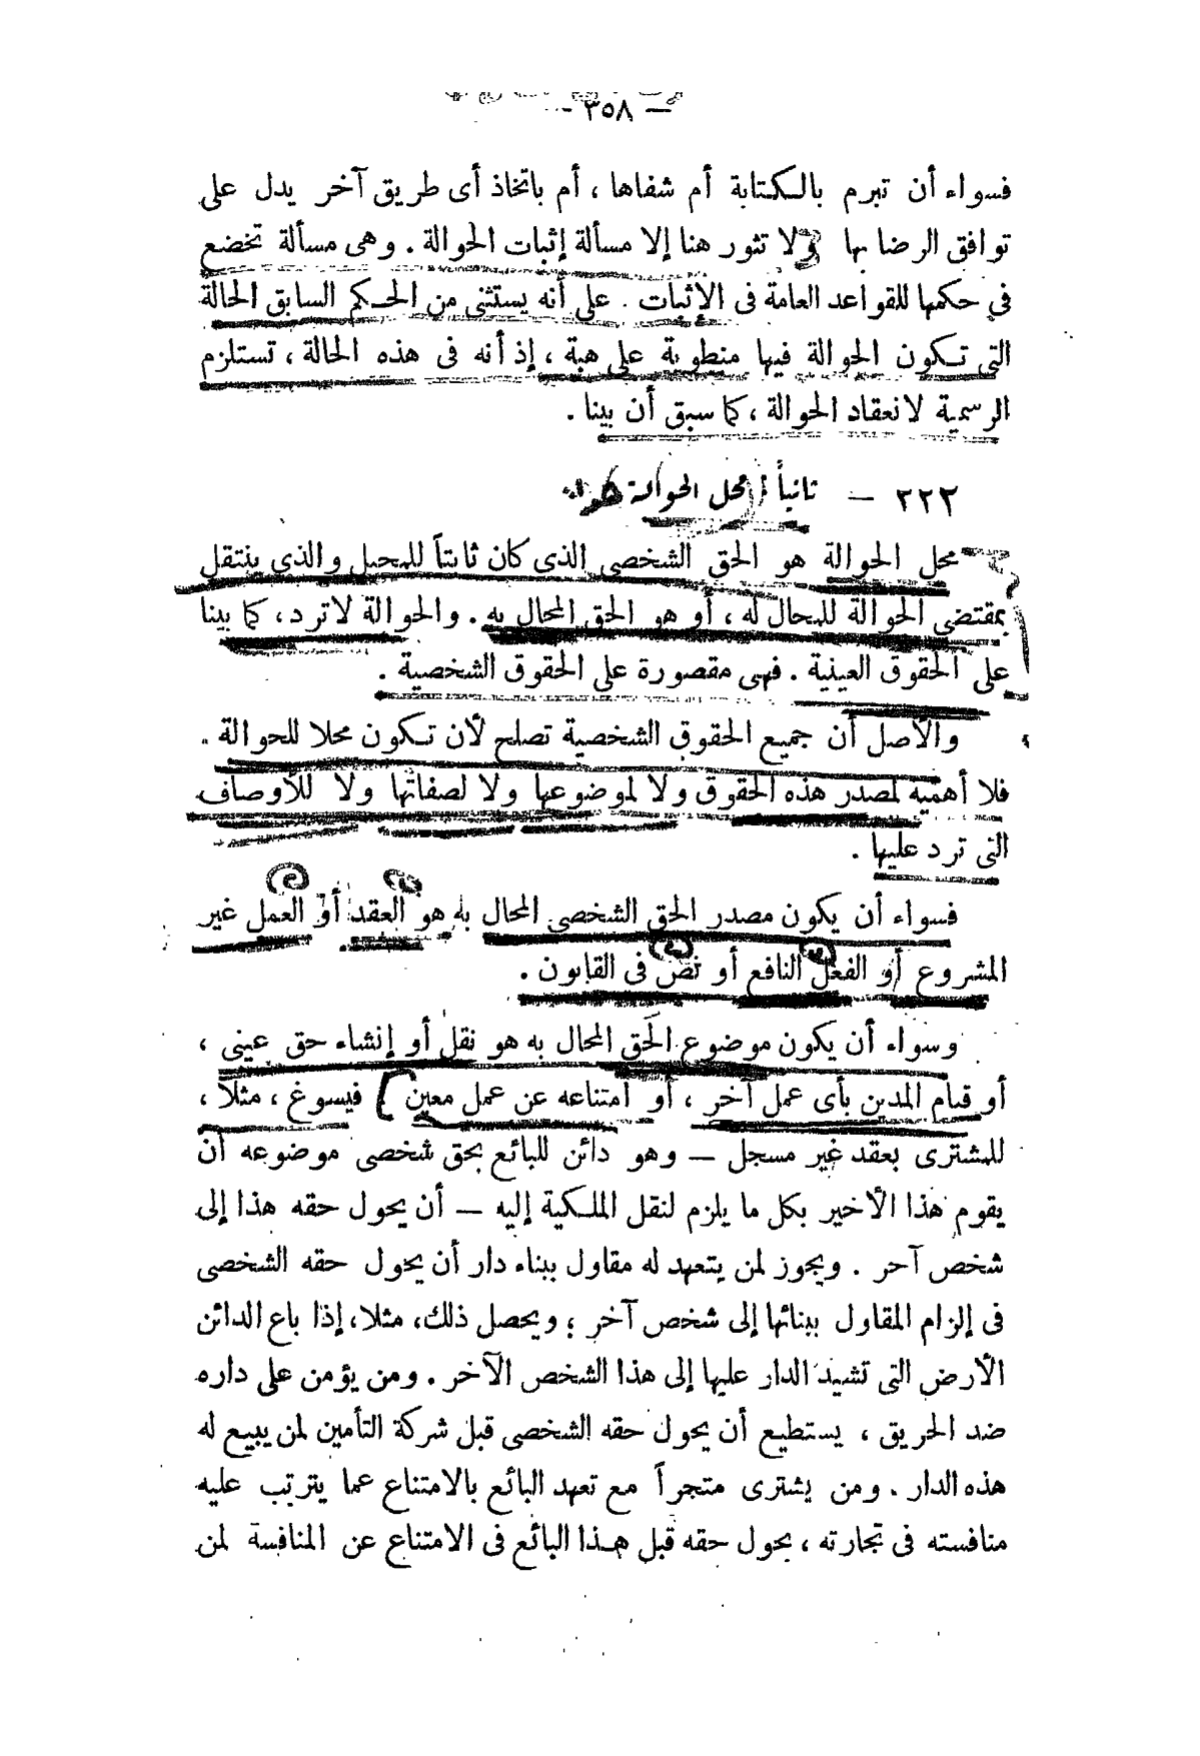 — ٣٥٨ —
فسواء أن تبرم بالكتابة أم شفاها ، أم باتخاذ أى طريق آخر يدل على
توافق الرضا بها ولا تثور هنا إلا مسألة إثبات الحوالة . وهى مسألة تخضع
في حكمها للقواعد العامة فى الإثبات . على أنه يستثنى من الحكم السابق الحالة
التى تكون الحوالة فيها منطوية على هبة ، إذ أنه فى هذه الحالة ، تستلزم
الرسمية لانعقاد الحوالة ، كما سبق أن بينا .
٢٢٢ — ثانياً : محل الحوالة
محل الحوالة هو الحق الشخصى الذى كان ثابتاً للمحيل والذي ينتقل
بمقتضى الحوالة للمحال له ، أو هو الحق المحال به . والحوالة لا ترد ، كما بينا
على الحقوق العينية . فهى مقصورة على الحقوق الشخصية .
والأصل أن جميع الحقوق الشخصية تصلح لأن تكون محلا للحوالة .
فلا أهمية لمصدر هذه الحقوق ولا لموضوعها ولا لصفاتها ولا للأوصاف
التى ترد عليها .
فسواء أن يكون مصدر الحق الشخصى المحال به هو العقد أو العمل غير
المشروع أو الفعل النافع أو نص فى القانون .
وسواء أن يكون موضوع الحق المحال به هو نقل أو إنشاء حق عينى ،
أو قيام المدين بأى عمل آخر ، أو امتناعه عن عمل معين فيسوغ ، مثلا ،
للمشترى بعقد غير مسجل — وهو دائن للبائع بحق شخصى موضوعه أن
يقوم هذا الأخير بكل ما يلزم لنقل الملكية إليه — أن يحول حقه هذا إلى
شخص آخر . ويجوز لمن يتعهد له مقاول ببناء دار أن يحول حقه الشخصى
فى إلزام المقاول ببنائها إلى شخص آخر ؛ ويحصل ذلك ، مثلا ، إذا باع الدائن
الأرض التى تشيد الدار عليها إلى هذا الشخص الآخر . ومن يؤمن على داره
ضد الحريق ، يستطيع أن يحول حقه الشخصى قبل شركة التأمين لمن يبيع له
هذه الدار . ومن يشترى متجراً مع تعهد البائع بالامتناع عما يترتب عليه
منافسته فى تجارته ، يحول حقه قبل هذا البائع فى الامتناع عن المنافسة لمن